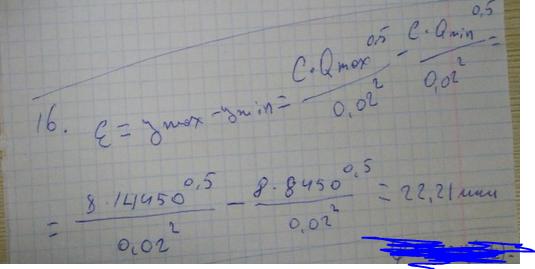 16. ε = ymax - ymin = C·Qmax^0,5 / 0,02² - C·Qmin^0,5 / 0,02² =
= 8·14450^0,5 / 0,02² - 8·8450^0,5 / 0,02² = 22,21 мин